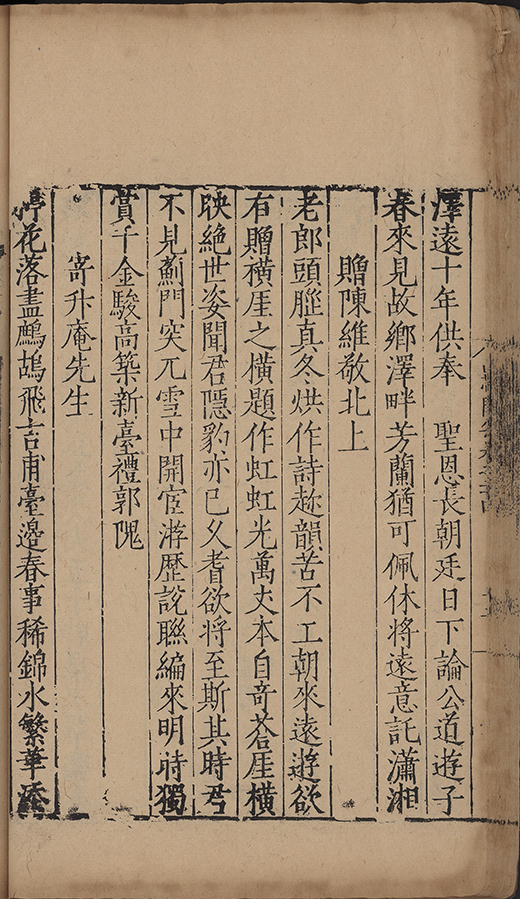 澤遠十年供奉　聖恩長朝廷日下論公道遊子
春來見故鄉澤畔芳蘭猶可佩休將遠意託瀟湘
贈陳維敬北上
老郎頭腦真冬烘作詩趂韻苦不工朝來遠遊欲
有贈橫厓之橫題作虹虹光萬丈本自奇蒼厓橫
映絶世姿聞君隱豹亦已久耆欲将至斯其時君
不見薊門突兀雪中開宦游歷說聯編來明時獨
賞千金駿高築新臺禮郭隗
寄升庵先生
花落盡鷓鴣飛吉甫臺邉春事稀錦水繁華